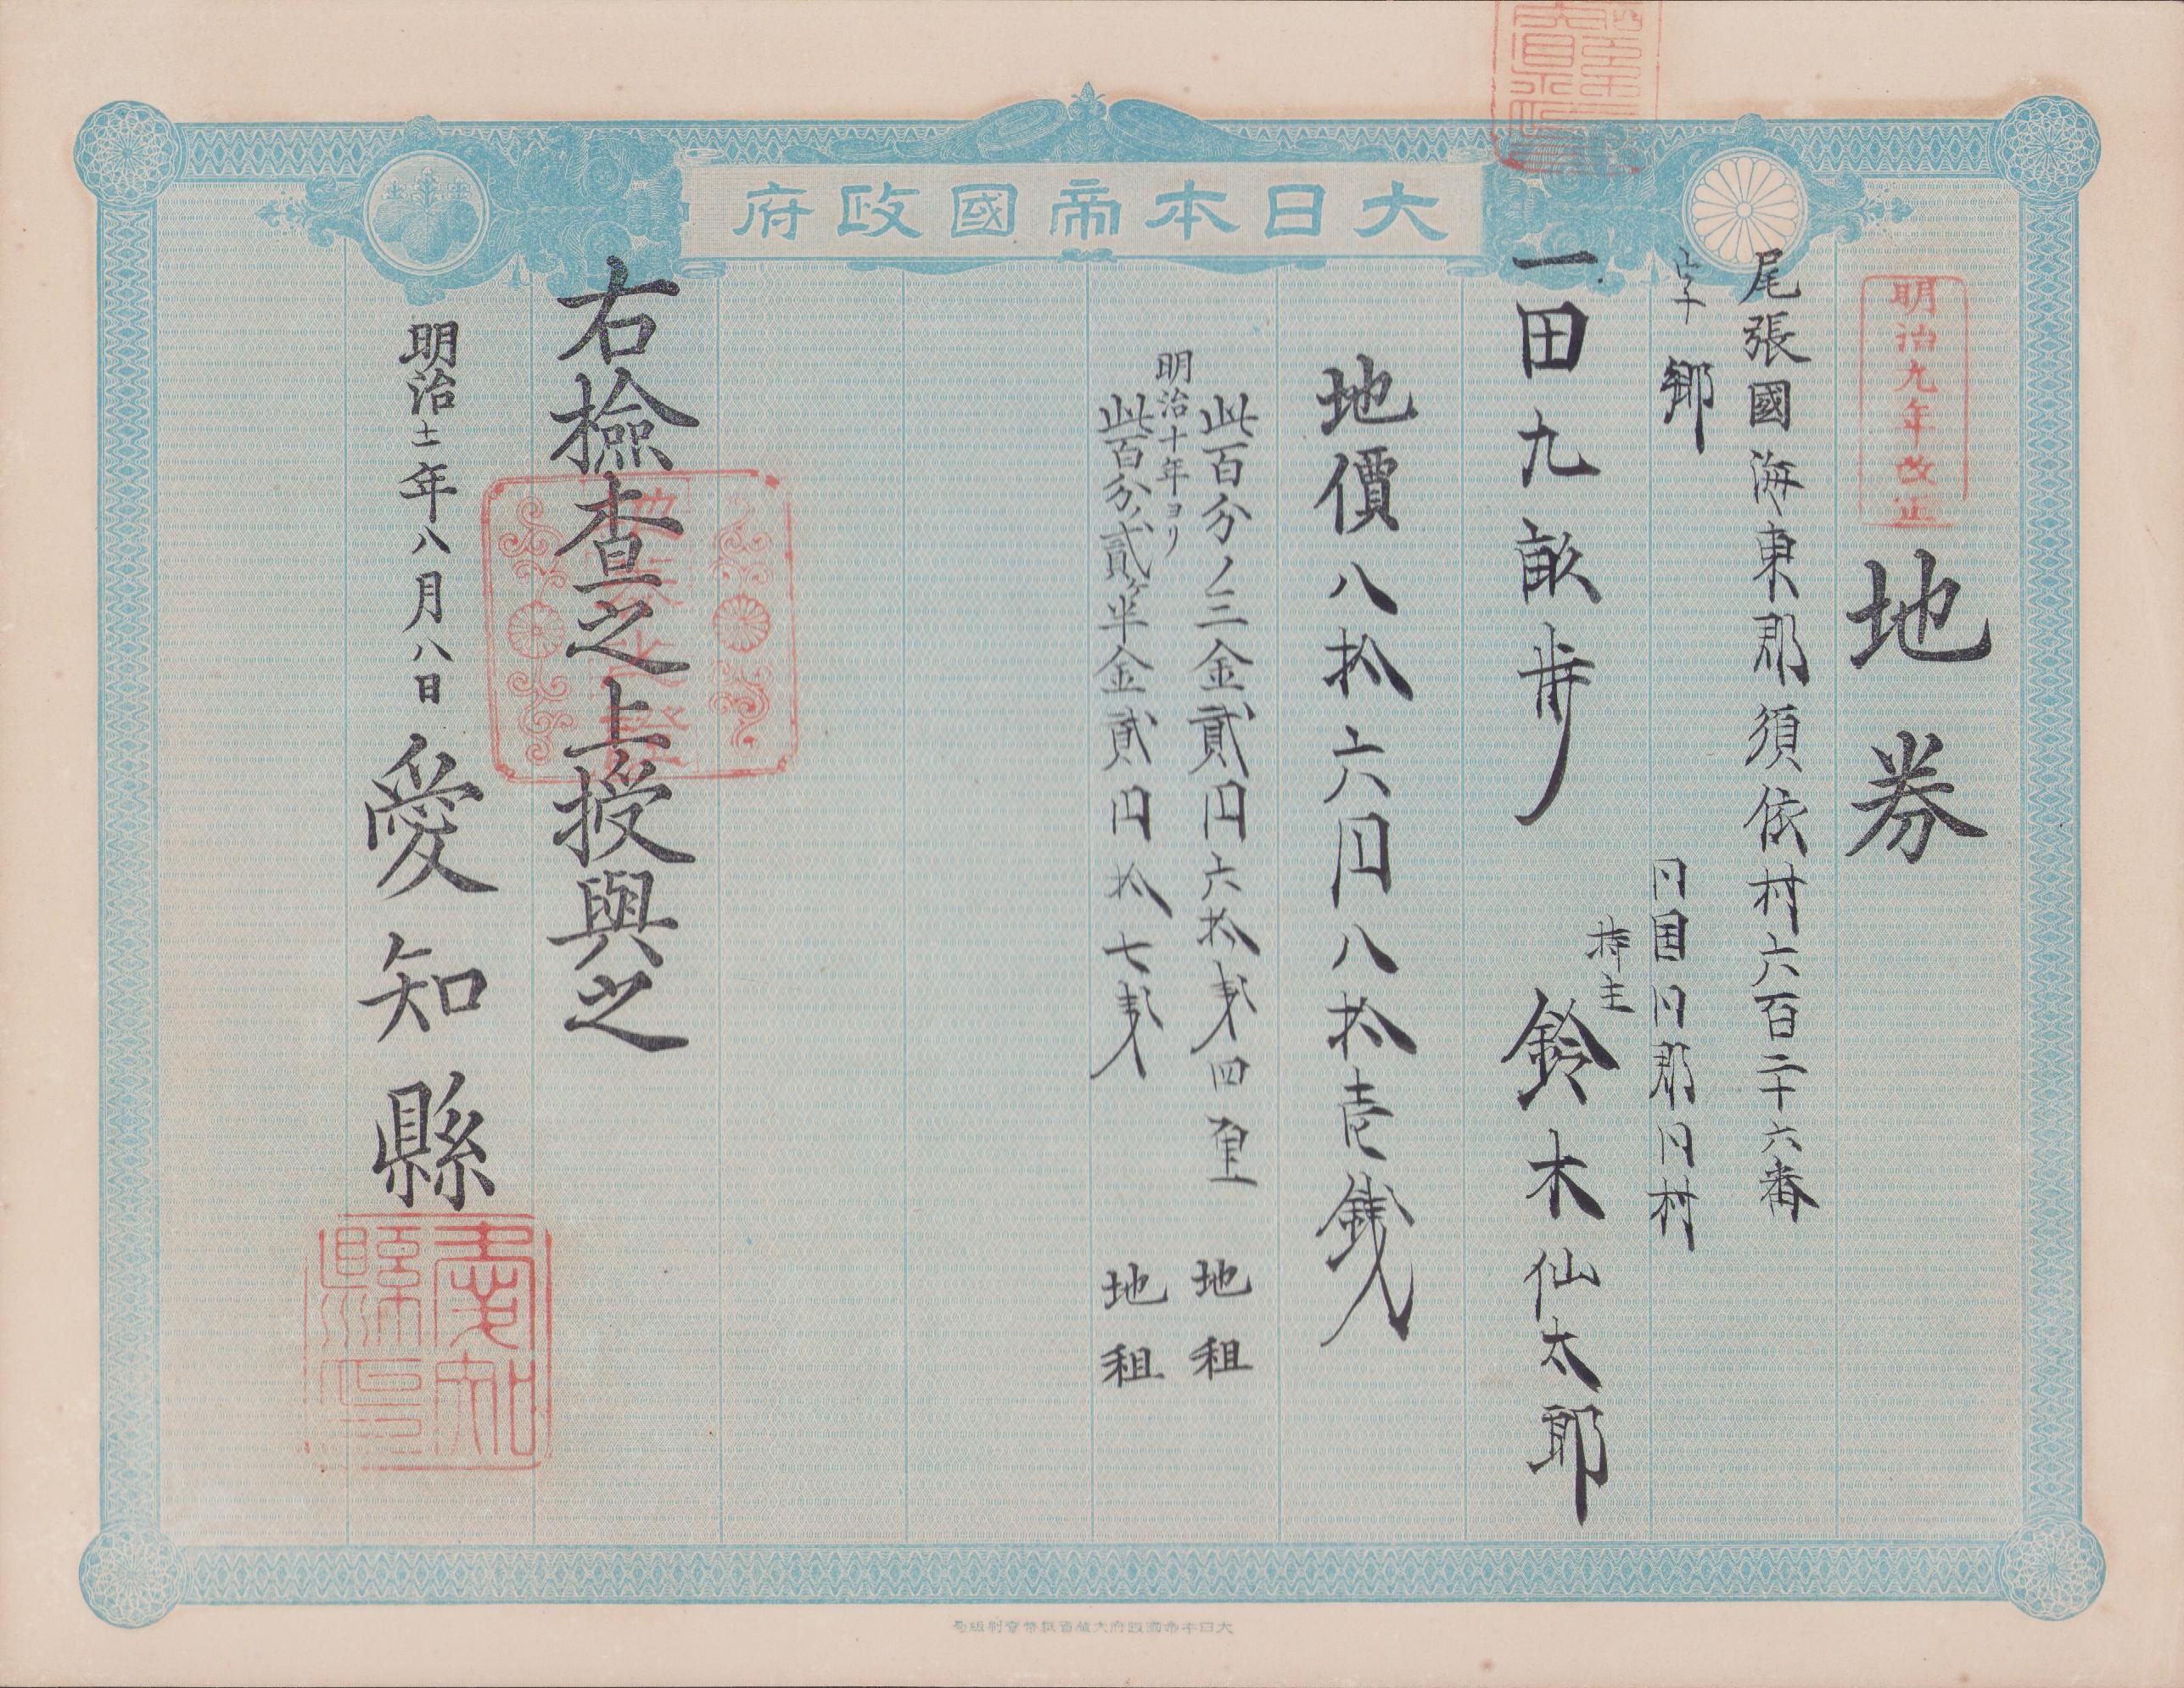 大日本帝國政府
明治九年改正
地券
尾張國海東郡須依村六百二十六番
字 郷
同国同郡同村
一田九畝歩
持主 鈴木仙太郎
地價八拾六円八拾壱銭
此百分ノ三金貳円六拾銭四厘 地租
明治十年ヨリ
此百分ノ貳ヶ半金貳円拾七銭 地租
右檢査之上授與之
地券之證
明治十一年八月八日 愛知縣
愛知縣印
大日本帝國政府大蔵省紙幣寮製